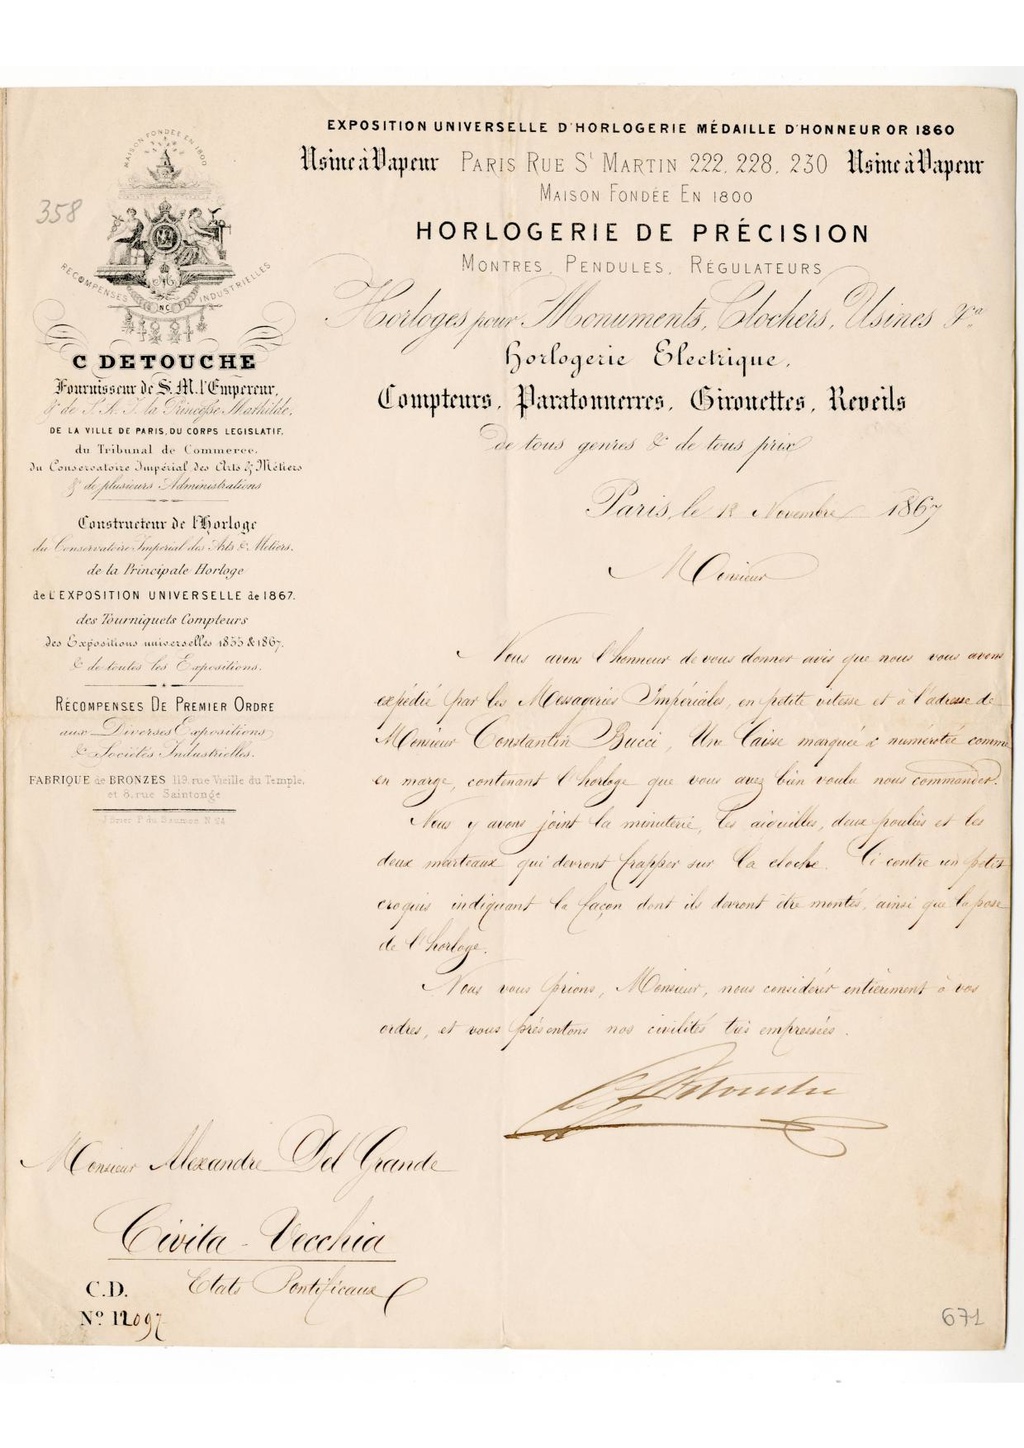 EXPOSITION UNIVERSELLE D'HORLOGERIE MÉDAILLE D'HONNEUR OR 1860
Usine à Vapeur PARIS RUE St MARTIN 222, 228, 230 Usine à Vapeur
MAISON FONDÉE EN 1800
HORLOGERIE DE PRÉCISION
MONTRES, PENDULES, RÉGULATEURS
Horloges pour Monuments, Clochers, Usines &ca
Horlogerie Electrique,
Compteurs, Paratonnerres, Girouettes, Reveils
de tous genres & de tous prix
358
MAISON FONDÉE EN 1800
RÉCOMPENSES INDUSTRIELLES
C DETOUCHE
Fournisseur de S. M. l'Empereur,
& de S. A. I. la Princesse Mathilde,
DE LA VILLE DE PARIS, DU CORPS LEGISLATIF,
du Tribunal de Commerce,
du Conservatoire Impérial des Arts & Métiers
& de plusieurs Administrations
Constructeur de l'Horloge
du Conservatoire Imperial des Arts & Metiers,
de la Principale Horloge
de L'EXPOSITION UNIVERSELLE de 1867.
des Tourniquets Compteurs
des Expositions universelles 1855 & 1867,
& de toutes les Expositions.
RÉCOMPENSES DE PREMIER ORDRE
aux Diverses Expositions
& Societés Industrielles.
FABRIQUE de BRONZES 113, rue Vieille du Temple,
et 8, rue Saintonge
Paris, le 18 Novembre 1867
Monsieur
Nous avons l'honneur de vous donner avis que nous vous avons
expédié par les Messageries Impériales, en petite vitesse et à l'adresse de
Monsieur Constantin Bucci, Une Caisse marquée & numérotée comme
en marge, contenant l'horloge que vous avez bien voulu nous commander.
Nous y avons joint la minuterie, les aiguilles, deux poulies et les
deux marteaux qui devront frapper sur la cloche. Ci contre un petit
croquis indiquant la façon dont ils devront être montés, ainsi que la pose
de l'horloge.
Nous vous prions, Monsieur, nous considérer entièrement à vos
ordres, et vous présentons nos civilités très empressées.
C Detouche
Monsieur Alexandre Del Grande
Civita-Vecchia
Etats Pontificaux
C.D.
No 12097
671